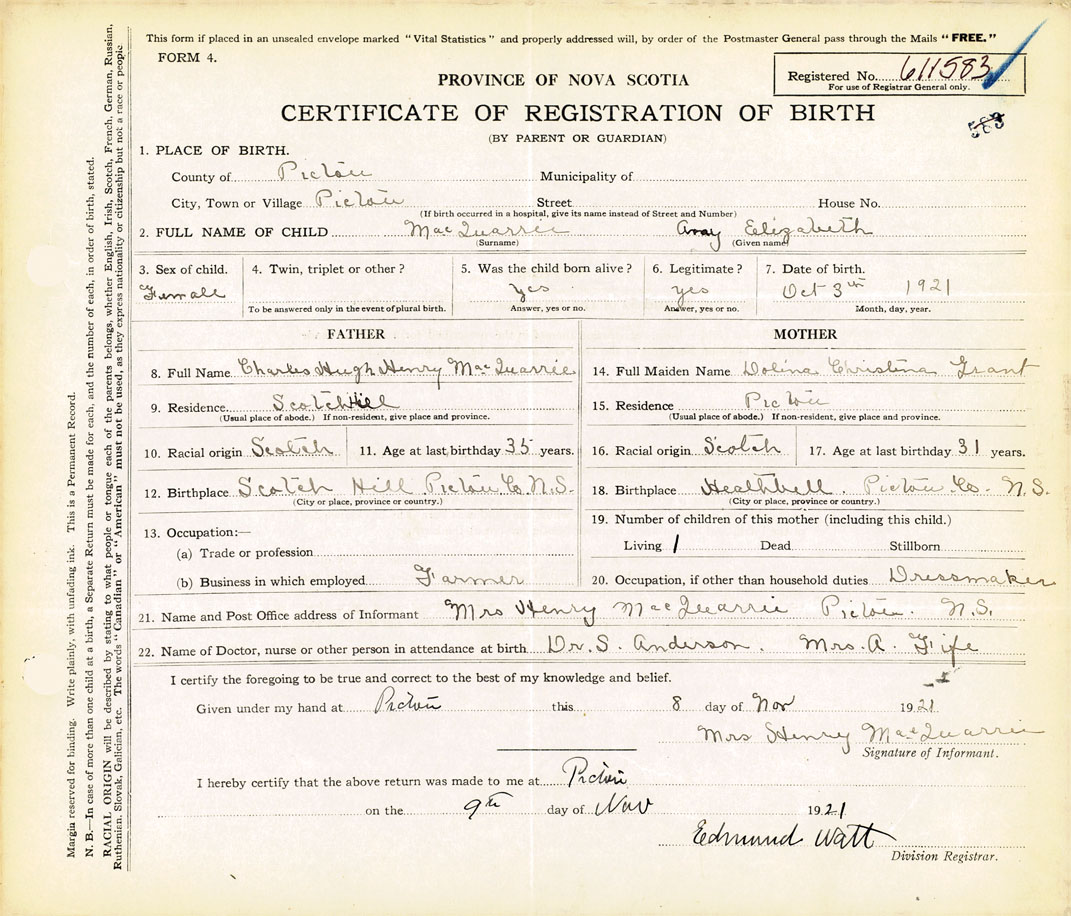 This form if placed in an unsealed envelope marked "Vital Statistics" and properly addressed will, by order of the Postmaster General pass through the Mails "FREE."
FORM 4.
Registered No. 611583
For use of Registrar General only.
PROVINCE OF NOVA SCOTIA
CERTIFICATE OF REGISTRATION OF BIRTH
583
(BY PARENT OR GUARDIAN)
1. PLACE OF BIRTH.
County of Pictou Municipality of
City, Town or Village Pictou Street House No.
(If birth occurred in a hospital, give its name instead of Street and Number)
2. FULL NAME OF CHILD MacQuarrie Elizabeth
(Surname) (Given name)
3. Sex of child. 4. Twin, triplet or other? 5. Was the child born alive? 6. Legitimate? 7. Date of birth.
Female yes yes Oct 3rd 1921
To be answered only in the event of plural birth. Answer, yes or no. Answer, yes or no. Month, day, year.
FATHER MOTHER
8. Full Name Charles Hugh Henry MacQuarrie 14. Full Maiden Name Dolina Christina Grant
9. Residence Scotch Hill 15. Residence Pictou
(Usual place of abode.) If non-resident, give place and province. (Usual place of abode.) If non-resident, give place and province.
10. Racial origin Scotch 11. Age at last birthday 35 years. 16. Racial origin Scotch 17. Age at last birthday 31 years.
12. Birthplace Scotch Hill Pictou Co. N.S. 18. Birthplace Heathbell. Pictou Co. N.S.
(City or place, province or country.) (City or place, province or country.)
19. Number of children of this mother (including this child.)
13. Occupation:—
Living 1 Dead Stillborn
(a) Trade or profession
(b) Business in which employed Farmer 20. Occupation, if other than household duties Dressmaker
21. Name and Post Office address of Informant Mrs Henry MacQuarrie Pictou. N.S.
22. Name of Doctor, nurse or other person in attendance at birth Dr. S. Anderson. Mrs. A. Fife
I certify the foregoing to be true and correct to the best of my knowledge and belief.
Given under my hand at Pictou this 8 day of Nov 1921
Mrs Henry MacQuarrie
Signature of Informant.
I hereby certify that the above return was made to me at Pictou
on the 9th day of Nov 1921
Edmund Watt
Division Registrar.
Margin reserved for binding. Write plainly, with unfading ink. This is a Permanent Record.
N. B.—In case of more than one child at a birth, a Separate Return must be made for each, and the number of each, in order of birth, stated.
RACIAL ORIGIN will be described by stating to what people or tongue each of the parents belongs, whether English, Irish, Scotch, French, German, Russian,
Ruthenian, Slovak, Galician, etc. The words "Canadian" or "American" must not be used, as they express nationality or citizenship but not a race or people